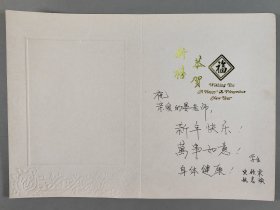 恭賀
新禧
福
Wishing You
A Happy & Prosperous
New Year
祝
老師,
新年快乐!
萬事如意!
身体健康!
学生